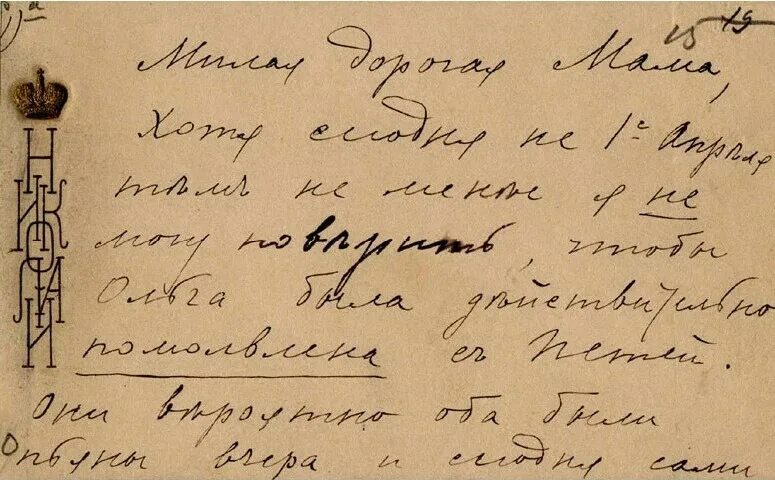 15 19
Милая дорогая Мама,
Хотя сегодня не 1ᵒᵉ Апрѣля
тѣмъ не менѣе я не
могу повѣрить, чтобы
Ольга была дѣйствительно
помолвлена съ Петей.
Они вѣроятно оба были
пьяны вчера и сегодня сами
НИКОЛАЙ